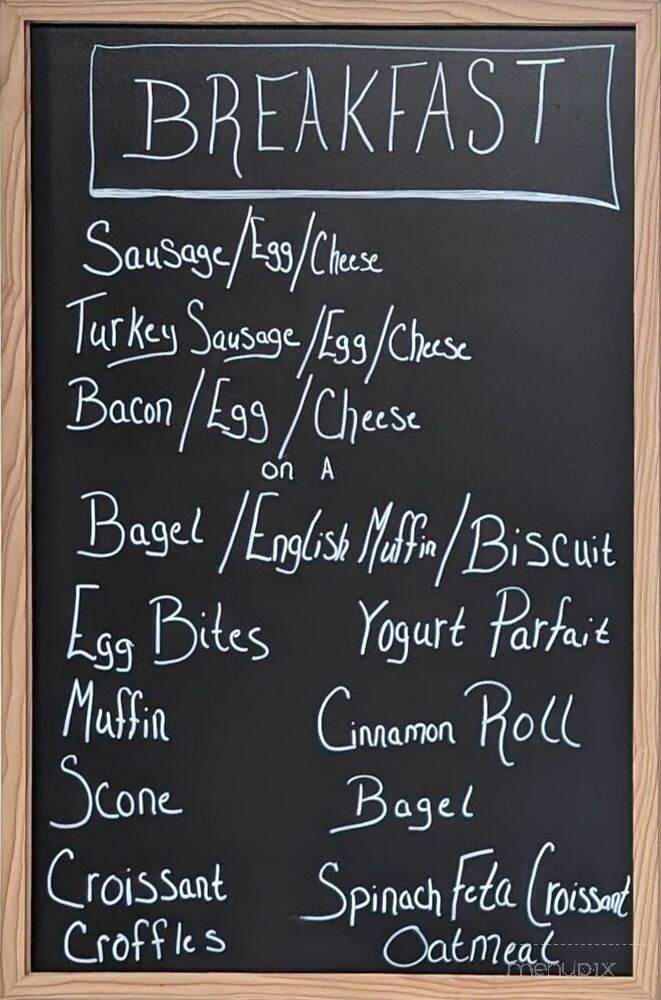 BREAKFAST
Sausage/Egg/Cheese
Turkey Sausage/Egg/Cheese
Bacon/Egg/Cheese
on A
Bagel/English Muffin/Biscuit
Egg Bites Yogurt Parfait
Muffin Cinnamon Roll
Scone Bagel
Croissant Spinach Feta Croissant
Croffles Oatmeal
menupix